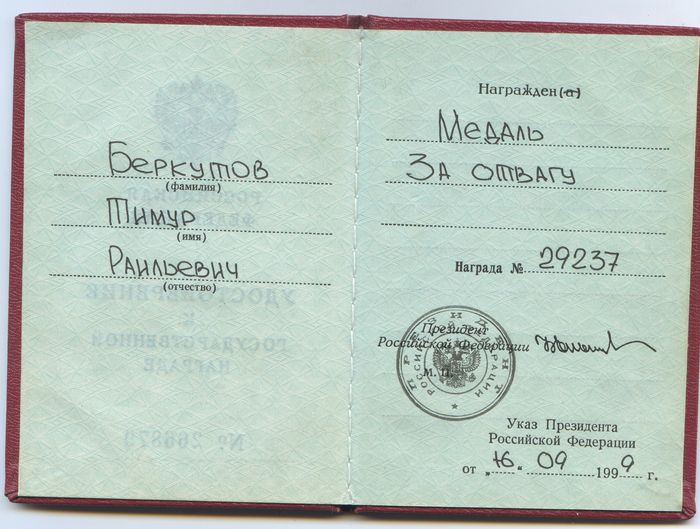 Беркутов
(фамилия)
Тимур
(имя)
Раильевич
(отчество)
Награжден(а)
Медаль
За отвагу
Награда № 29237
Президент
Российской Федерации
М. П.
ПРЕЗИДЕНТ
РОССИЙСКОЙ ФЕДЕРАЦИИ
Указ Президента
Российской Федерации
от „16“ 09 1999 г.